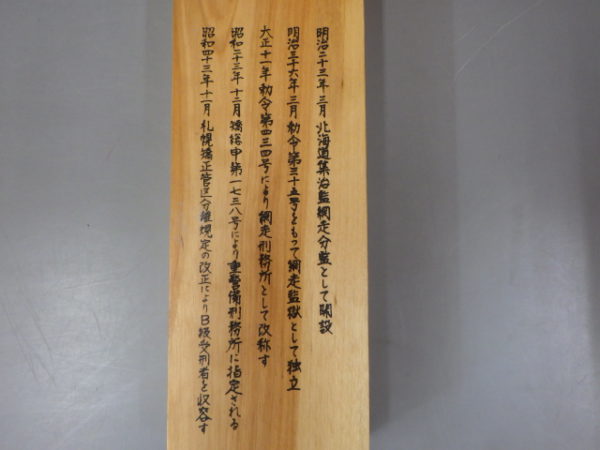 明治二十三年三月北海道集治監網走分監として開設
明治三十六年三月勅令第三十五号をもって網走監獄として独立
大正十一年勅令第四三四号により網走刑務所として改称す
昭和二十三年十二月矯総甲第一七三八号により重警備刑務所に指定される
昭和四十三年十一月札幌矯正管区分離規定の改正によりB級受刑者を収容す